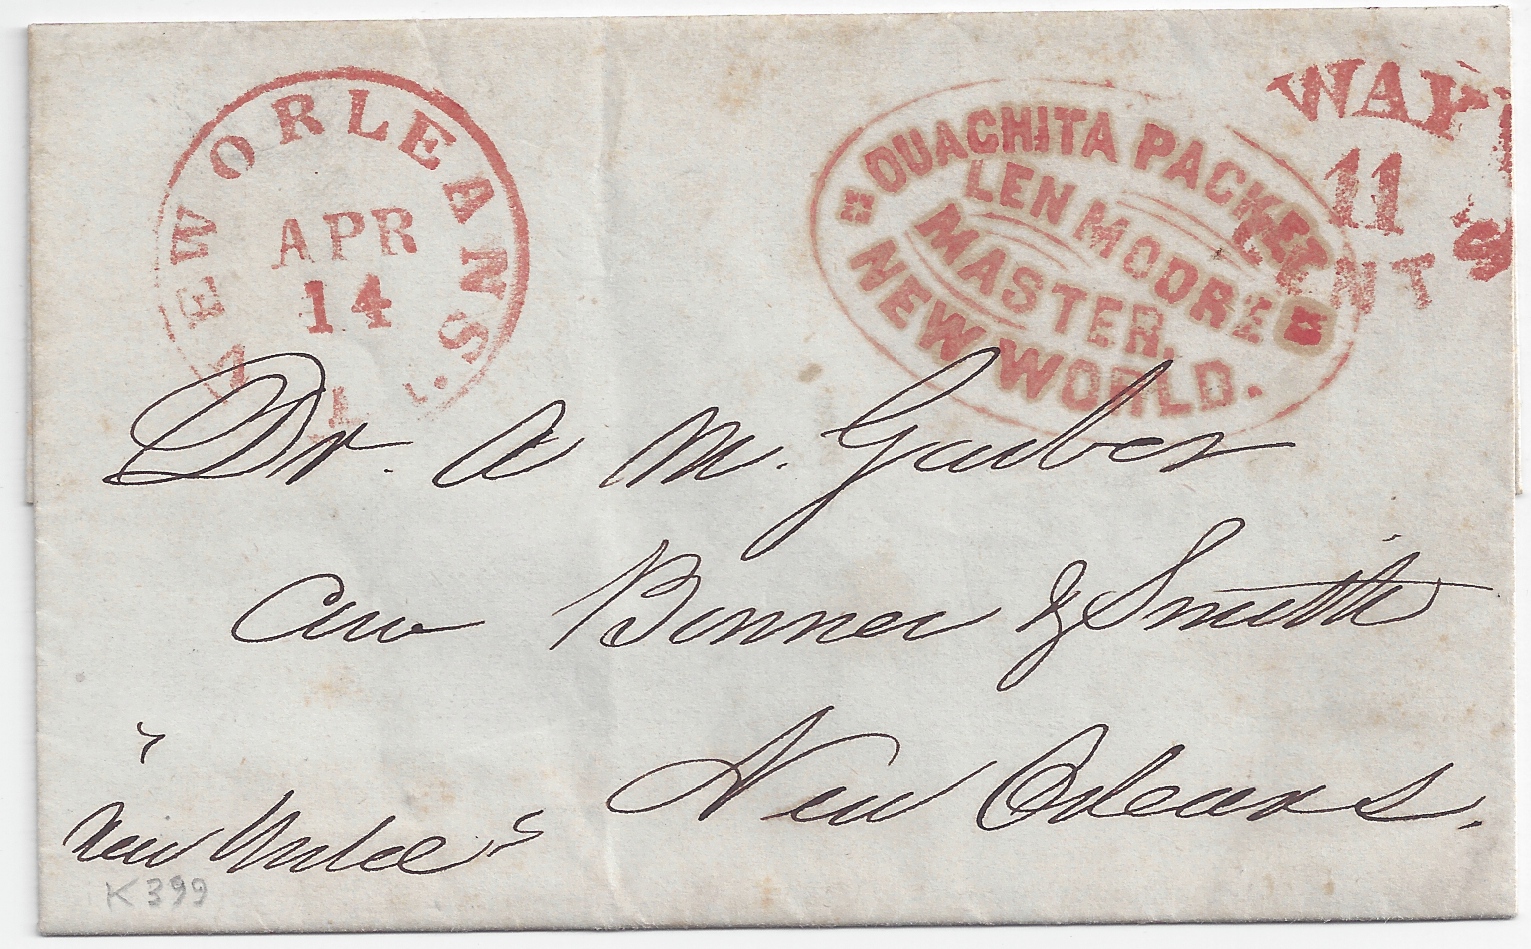 NEW ORLEANS.
APR
14
LA.
OUACHITA PACKET
LEN MOORE
MASTER,
NEW WORLD.
WAY
11
CENTS
Dr. A M. Gruber
Care Bonner & Smith
New Orleans.
"New World"
K399